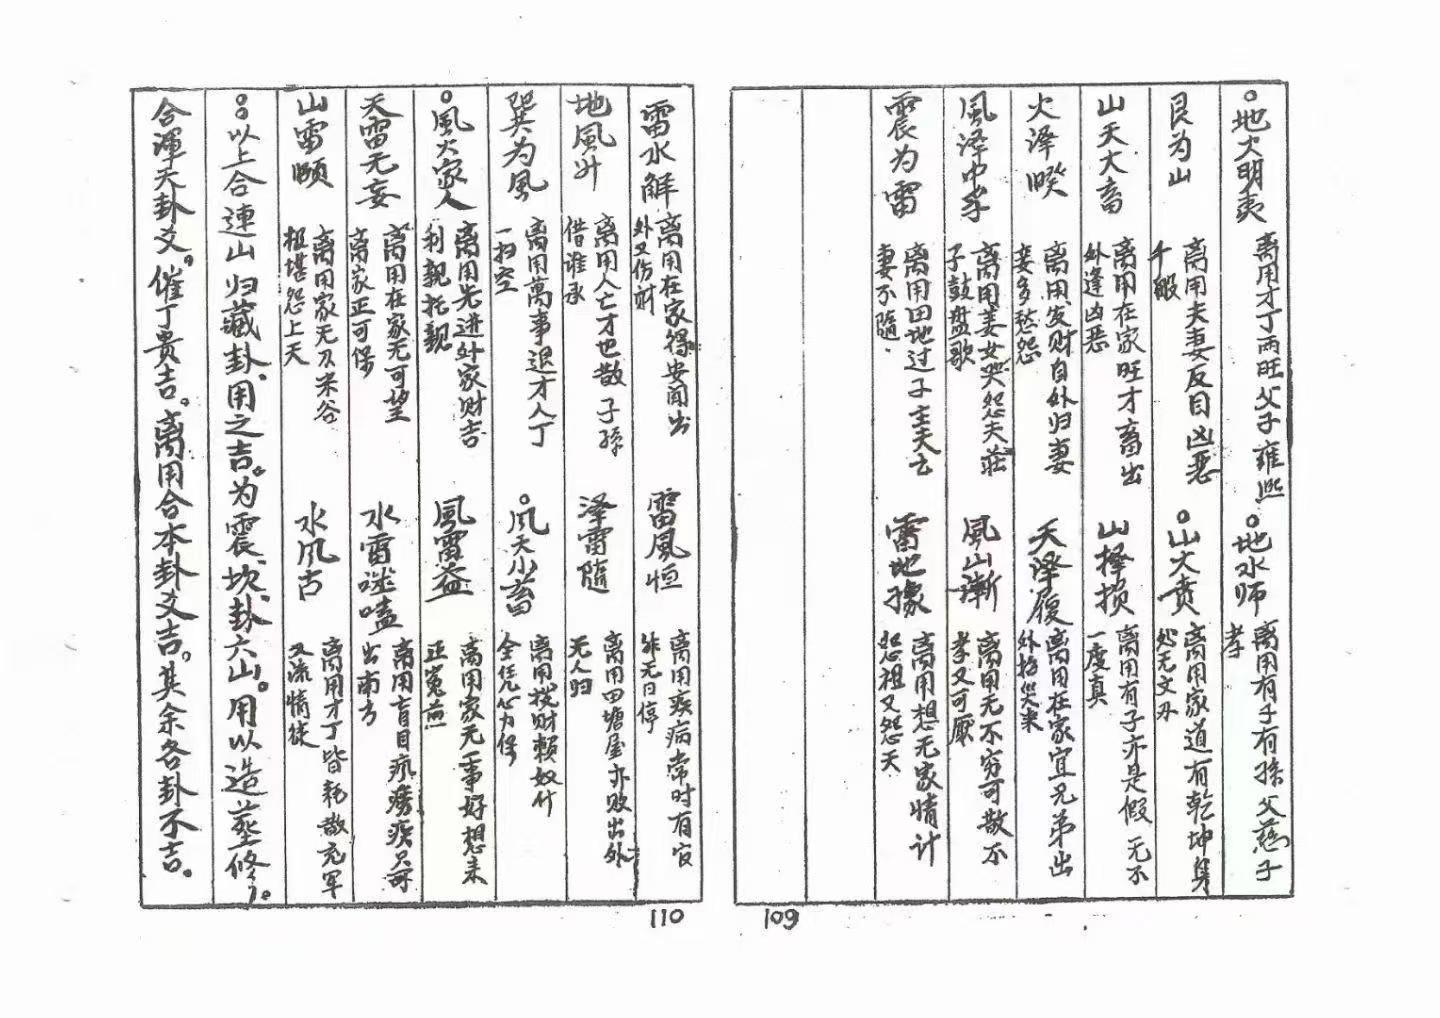 ○地火明夷 离用才丁两旺父子雍熙
○地水师 离用有子有孫父慈子孝
艮为山 离用夫妻反目凶恶千般
○山火賁 离用家道有乾坤只怨无文刃
山天大畜 离用在家旺才畜出外逢凶恶
山择损 离用有子亦是假无不一度真
火泽暌 离用发财自外归妻妾多愁怨
天泽履 离用在家宜兄弟出外拾灾来
風泽中孚 离用妾女哭怨夫莊子鼓盘歌
風山漸 离用无不穷可散不孝又可厭
震为雷 离用田地过子主夫亡妻不隨
雷地豫 离用想无家情计怨祖又怨天
109
雷水解 离用在家得安闻出外又伤财
雷風恒 离用疾病常时有官非无日停
地風升 离用人亡才也散子孫借谁承
泽雷隨 离用田塘屋亦败出外无人归
巽为風 离用萬事退才人丁一扫空
○风天小畜 离用找财賴奴什全凭心力保
○風火家人 离用先进外家财吉利親托親
風雷益 离用家无一事好想来正冤煎
天雷无妄 离用在家无可望离家正可保
水雷謎嗑 离用盲目疯癆疾只可出南方
山雷頤 离用家无刃米谷根堪怨上天
水风古 离用才丁皆耗散充军又流情徒
○○以上合連山归藏卦、用之吉。为震、坎、卦、六山。用以造葬修、。
合渾天卦爻。催丁贵吉。离用合本卦爻吉。其余各卦不吉。
110